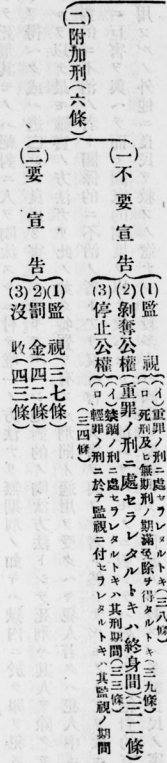 (二)附加刑(六條)
(一)不要宣告
(1)監視
(イ)重罪ノ刑ニ處セラレタルトキ(三八條)
(ロ)死刑及ヒ無期刑ノ期滿免除ヲ得タルトキ(三九條)
(2)剝奪公權(重罪ノ刑ニ處セラレタルトキハ終身間(三二條)
(3)停止公權
(イ)禁錮ノ刑ニ處セラレタルトキハ其刑期間(三三條)
(ロ)輕罪ノ刑ニ於テ監視ニ付セラレタルトキハ其監視ノ期間
(三四條)
(二)要宣告
(1)監視(三七條)
(2)罰金(四二條)
(3)沒收(四三條)